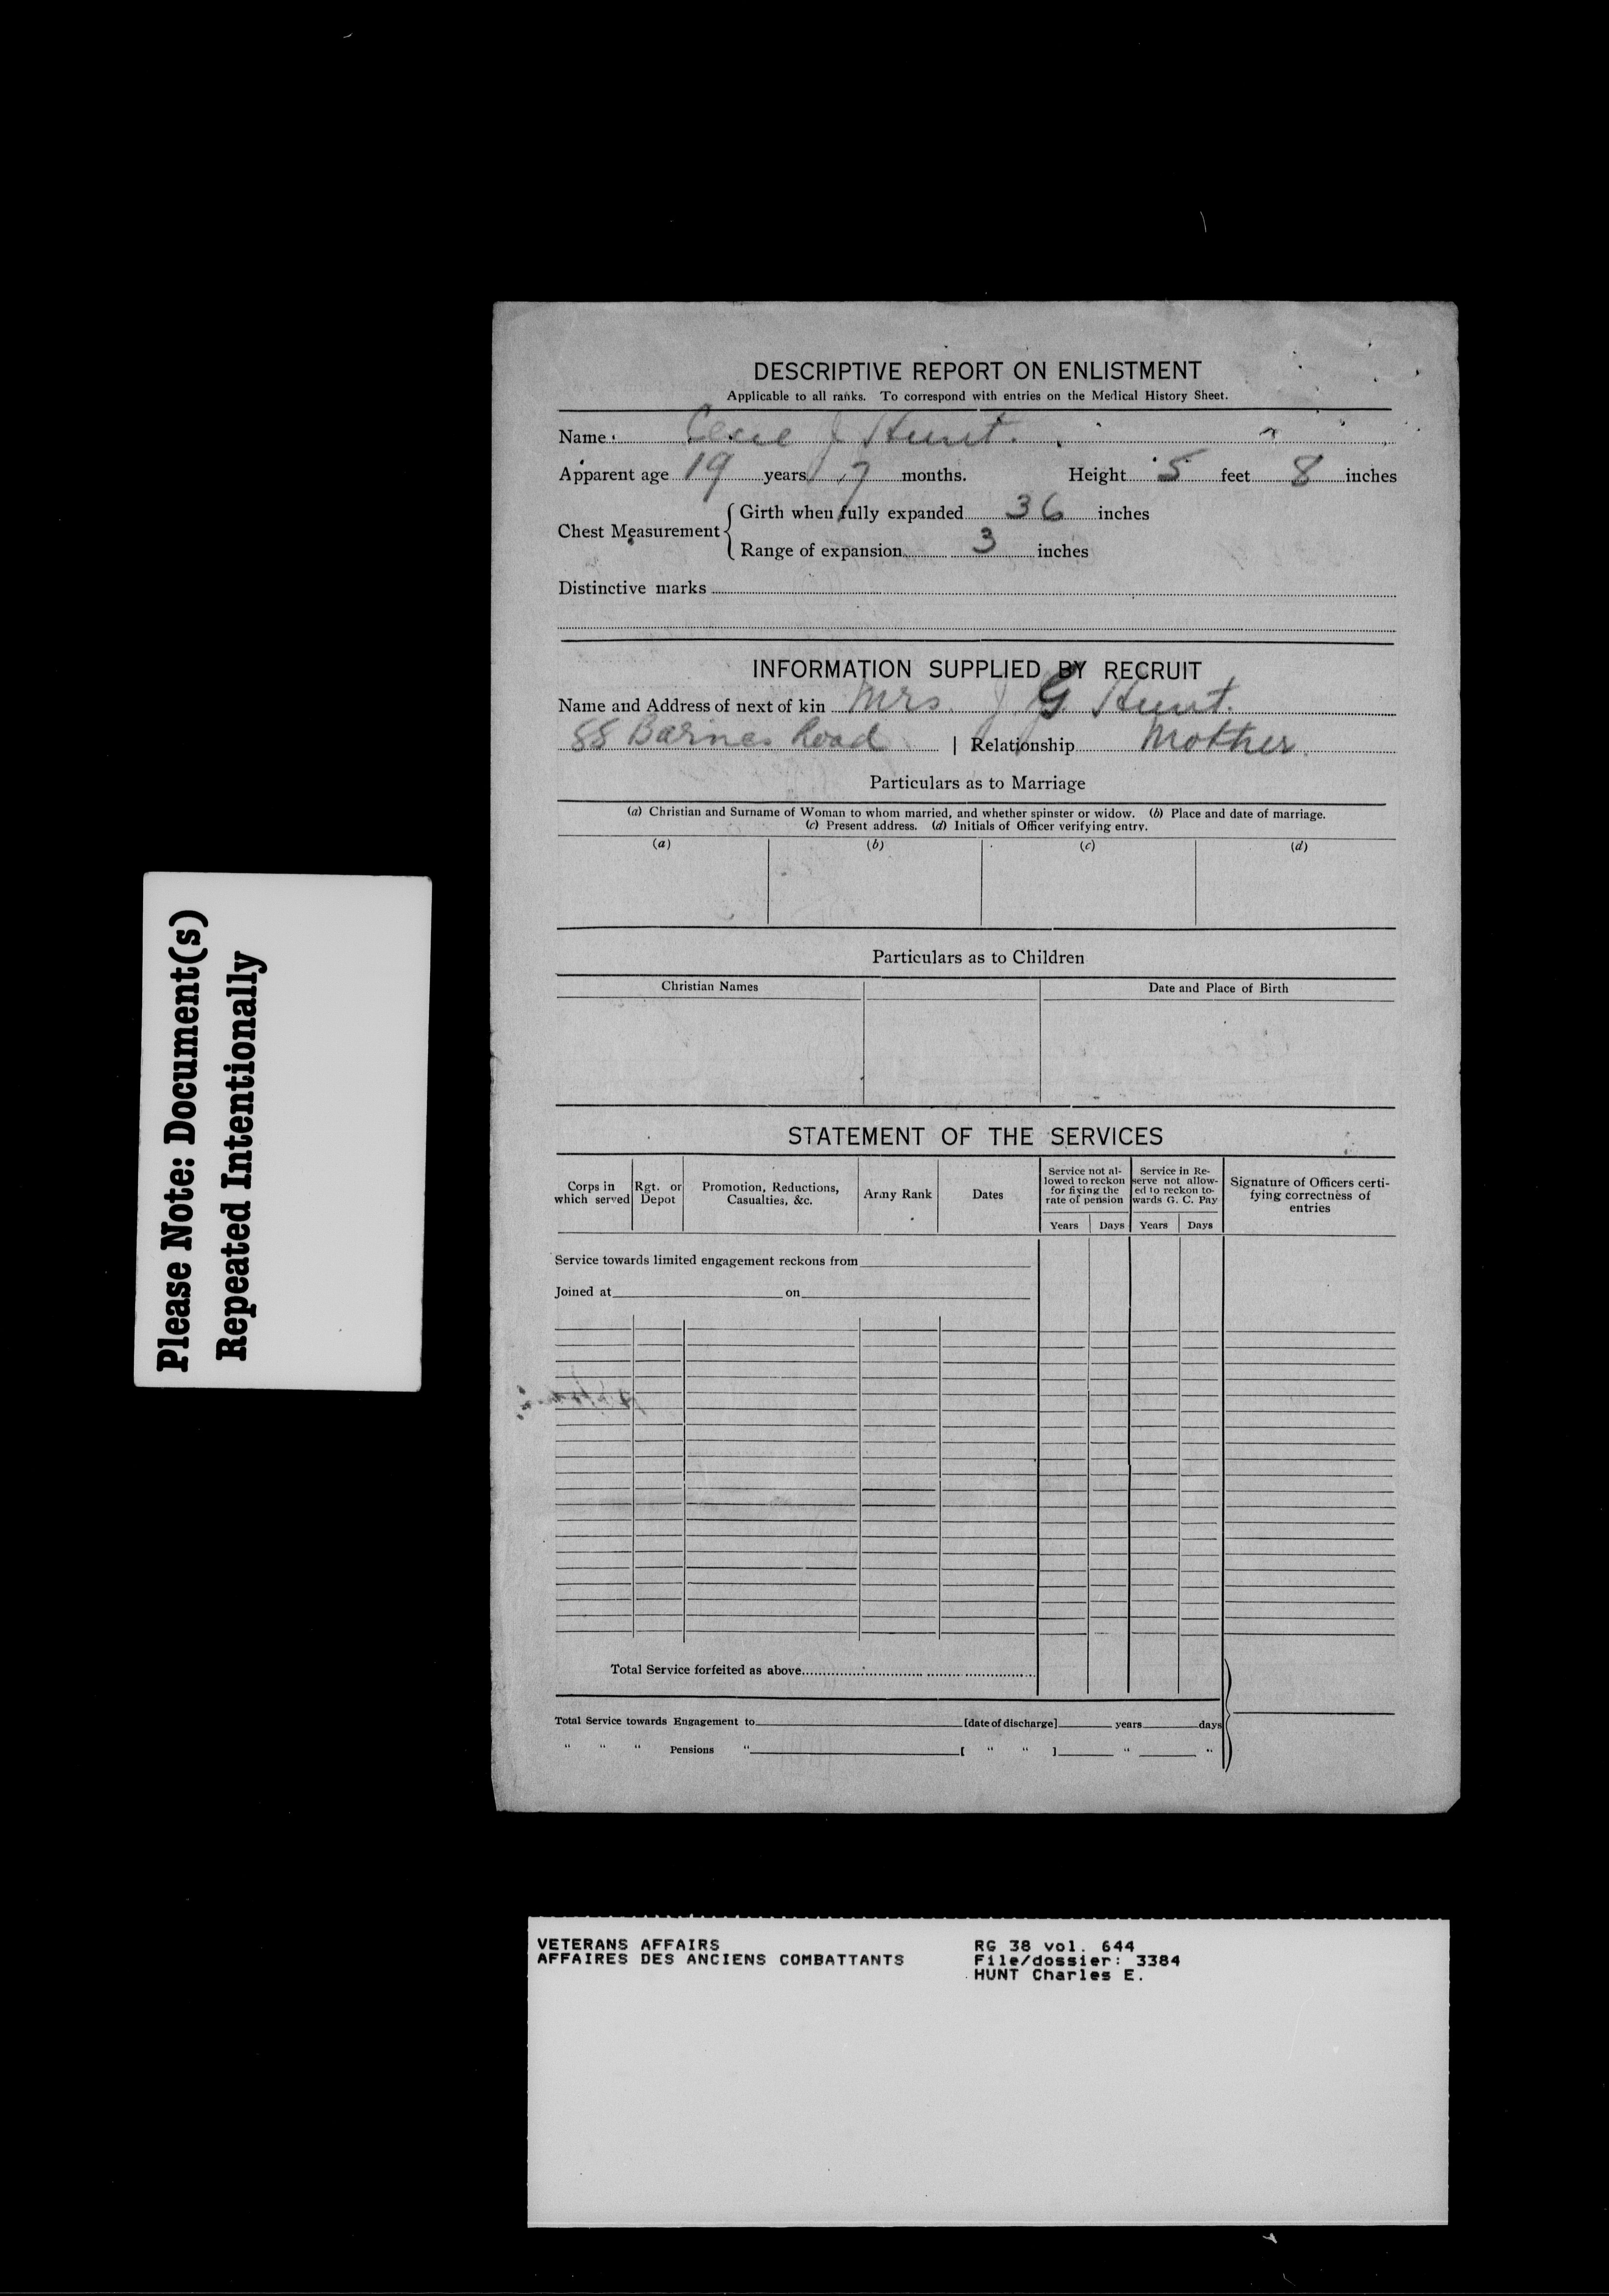 DESCRIPTIVE REPORT ON ENLISTMENT
Applicable to all ranks. To correspond with entries on the Medical History Sheet.
Name Cecil J Hunt.
Apparent age 19 years 7 months. Height 5 feet 8 inches
Chest Measurement { Girth when fully expanded 36 inches
Range of expansion 3 inches
Distinctive marks
INFORMATION SUPPLIED BY RECRUIT
Name and Address of next of kin Mrs. J G Hunt.
88 Barnes Road | Relationship Mother.
Particulars as to Marriage
(a) Christian and Surname of Woman to whom married, and whether spinster or widow. (b) Place and date of marriage.
(c) Present address. (d) Initials of Officer verifying entry.
(a) (b) (c) (d)
Particulars as to Children
Christian Names Date and Place of Birth
STATEMENT OF THE SERVICES
Corps in which served Rgt. or Depot Promotion, Reductions, Casualties, &c. Army Rank Dates Service not allowed to reckon for fixing the rate of pension Service in Reserve not allowed to reckon towards G. C. Pay Signature of Officers certifying correctness of entries
Years Days Years Days
Service towards limited engagement reckons from
Joined at on
Total Service forfeited as above
Total Service towards Engagement to [date of discharge] years days
" " " Pensions " [ " " ] " "
Please Note: Document(s)
Repeated Intentionally
VETERANS AFFAIRS RG 38 vol. 644
AFFAIRES DES ANCIENS COMBATTANTS File/dossier: 3384
HUNT Charles E.